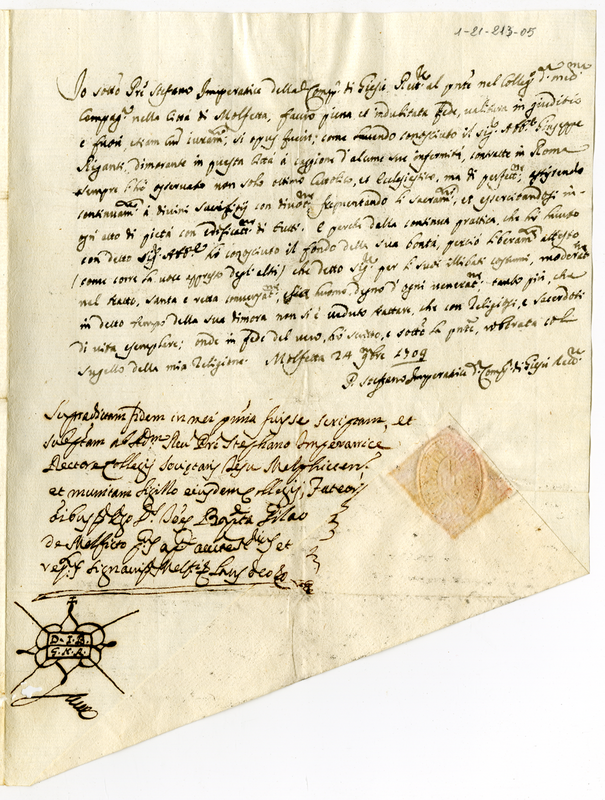 1-21-213-05
Io sotto Prē Stefano Imperatrice della Compª di Giesù, Rettᵉ al pntē nel Collegº dª medª
Compagª nella Città di Molfetta, faccio piena et indubitata fede, valitura in giuditio
e fuori etiam cum iuramtº, si opus fuerit; come havendo conosciuto il Sigʳ Abbᵗᵉ Giuseppe
Riganti, dimorante in questa Città à caggione d'alcune sue infermità, contratte in Roma
sempre l'hò osservato non solo ottimo Cattolico, et Eclesiastico, ma di perfettº assistendo
continuamᵗᵉ à divini Sacrifizij con divotⁿᵉ frequentando li Sacramᵗⁱ, et esercitandosi in
ogni atto di pietà con edificatⁿᵉ di tutti. E perche dalla continua prattica, che hò havuto
con detto Sigʳ Abbᵗᵉ hò conosciuto il fondo della sua bontà, perciò liberamᵗᵉ attesto
(come corre la voce appresso degl'altri) che detto Sigʳ per li suoi illibati costumi, moderatº
nel tratto, santa e retta conversatⁿᵉ, huomo degno d'ogni veneratⁿᵉ tanto più, che
in detto tempo della sua dimora non si è veduto trattare, che con Religiosi, e Sacerdoti
di vita esemplare; onde in fede del vero, hò scritto, e sottº la pntē, roborata col
sugello della mia Religione. Molfetta 24 9bre 1709
P. Stefano Imperatrice dª Compª di Giesù Rettᵉ
Supradictam fidem in mei pntia fuisse scriptam, et
subsptam ab Adm Reu Prē Stephano Imperatrice
Rectore Collegij societatis Jesu Melphicten:
et munitam sigillo eiusdem Collegij, fateor
de Melficto et
signavi Laus deo
D. I. B.
G. N. R.